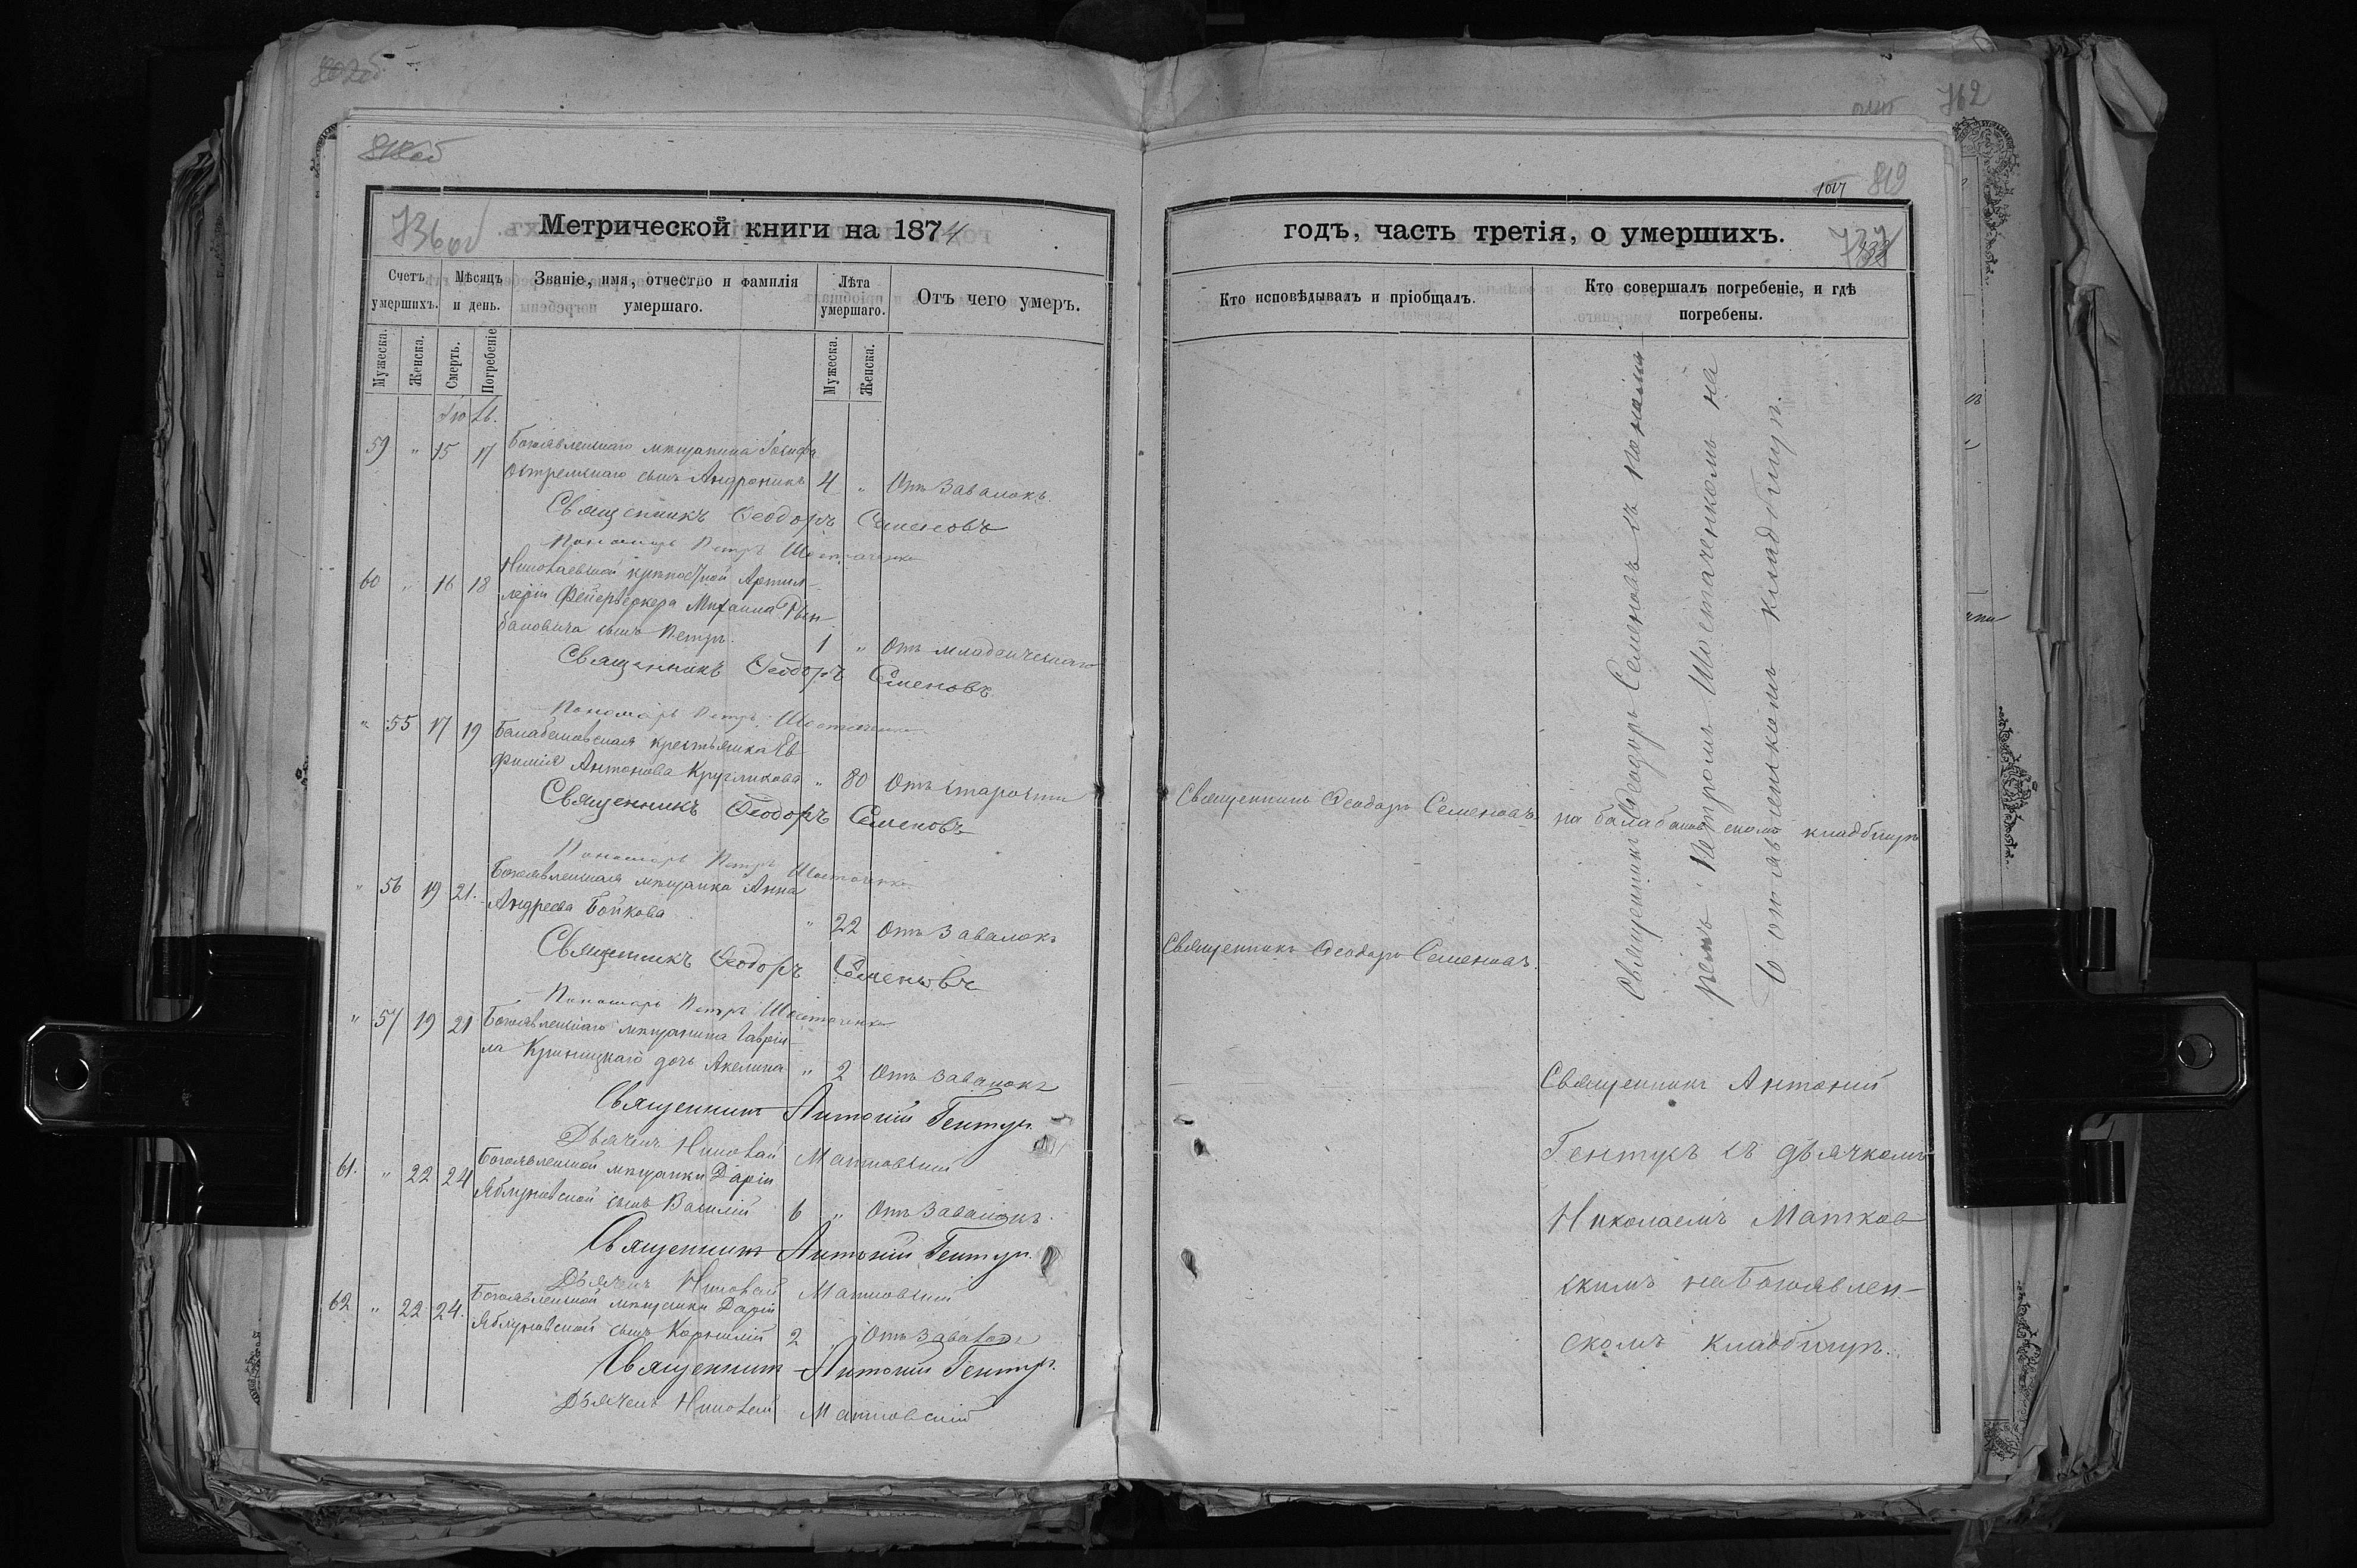 818об
Метрической книги на 1874
736об
Счетъ умершихъ.
Мѣсяцъ и день.
Званіе, имя, отчество и фамилія умершаго.
Лѣта умершаго.
Отъ чего умеръ.
Мужеска.
Женска.
Смерть.
Погребеніе
Мужеска.
Женска.
Іюль.
59 " 15 17 Богоявленскаго мѣщанина Іосифа
сынъ Андроникъ 4 " Отъ завалокъ.
Священникъ Ѳеодоръ Семеновъ
Пономарь Петръ Шостаченко
60 " 16 18 Николаевской крѣпостной Артил-
леріи Фейерверкера Михаила
сынъ Петръ. 1 " Отъ младенческаго
Священникъ Ѳеодоръ Семеновъ
Пономарь Петръ Шостаченко
" 55 17 19 Балабановская крестьянка Ев
фимія Антонова Кругликова " 80 Отъ старости
Священникъ Ѳеодоръ Семеновъ
Пономарь Петръ Шостаченко
" 56 19 21. Богоявленская мѣщанка Анна
Андреева Бойкова " 22 Отъ завалокъ
Священникъ Ѳеодоръ Семеновъ
Пономарь Петръ Шостаченко
" 57 19 21 Богоявленскаго мѣщанина Гавріи-
ла Криницкаго дочь Акелина " 2 Отъ завалокъ
Священникъ Антоній Гентукъ
Дьячекъ Николай Матковскій
61. " 22 24 Богоявленской мѣщанки Даріи
Яблуновской сынъ Василій 6 " Отъ завалокъ.
Священникъ Антоній Гентукъ
Дьячекъ Николай Матковскій
62 " 22 24. Богоявленской мѣщанки Даріи
Яблуновской сынъ Корнилій 2 " Отъ завалокъ
Священникъ Антоній Гентукъ
Дьячекъ Николай Матковскій
762
819
годъ, часть третія, о умершихъ.
737
Кто исповѣдывалъ и пріобщалъ.
Кто совершалъ погребеніе, и гдѣ погребены.
Священникъ Ѳеодоръ Семеновъ съ понама
ремъ Петромъ Шостаченкомъ на
Богоявленскомъ кладбищѣ.
Священникъ Ѳеодоръ Семеновъ
на балабановскомъ кладбищѣ
Священникъ Ѳеодоръ Семеновъ.
Священникъ Антоний
Гентукъ съ дьячкомъ
Николаемъ Матков
скимъ на Богоявлен-
скомъ кладбищѣ.